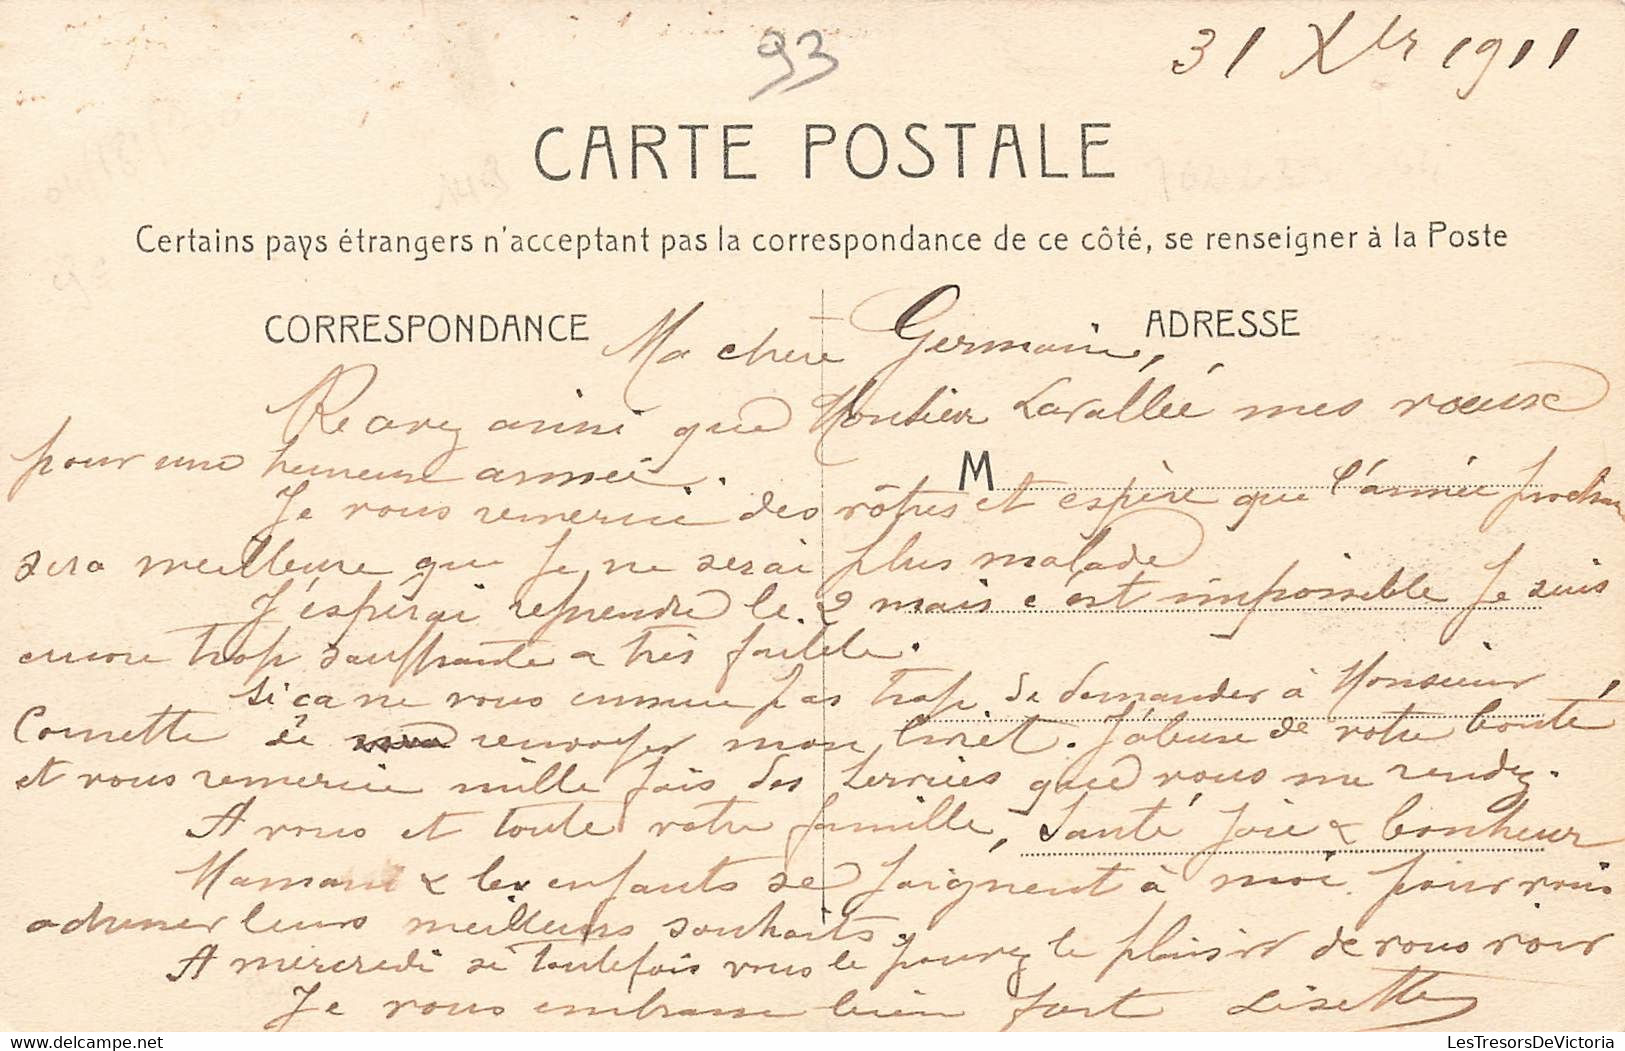 93
31 Xbr 1911
CARTE POSTALE
Certains pays étrangers n'acceptant pas la correspondance de ce côté, se renseigner à la Poste
CORRESPONDANCE
ADRESSE
Ma chère Germaine,
Recevez ainsi que Monsieur Lavallée mes vœux
pour une heureuse année.
M
Je vous remercie des vôtres et espère que l'année prochaine
sera meilleure que je ne serai plus malade
J'espérai reprendre le 2 mais c'est impossible Je suis
encore trop souffrante & très faible.
Si ça ne vous ennuie pas trop de demander à Monsieur
Cornette de renvoyer mon livret. J'abuse de votre bonté,
et vous remercie mille fois des services que vous me rendez.
A vous et toute votre famille, Santé Joie & bonheur
Maman & les enfants se joignent à moi pour vous
adresser leurs meilleurs souhaits.
A mercredi si toutefois vous le pouvez le plaisir de vous voir
Je vous embrasse bien fort Lisette
LesTresorsDeVictoria